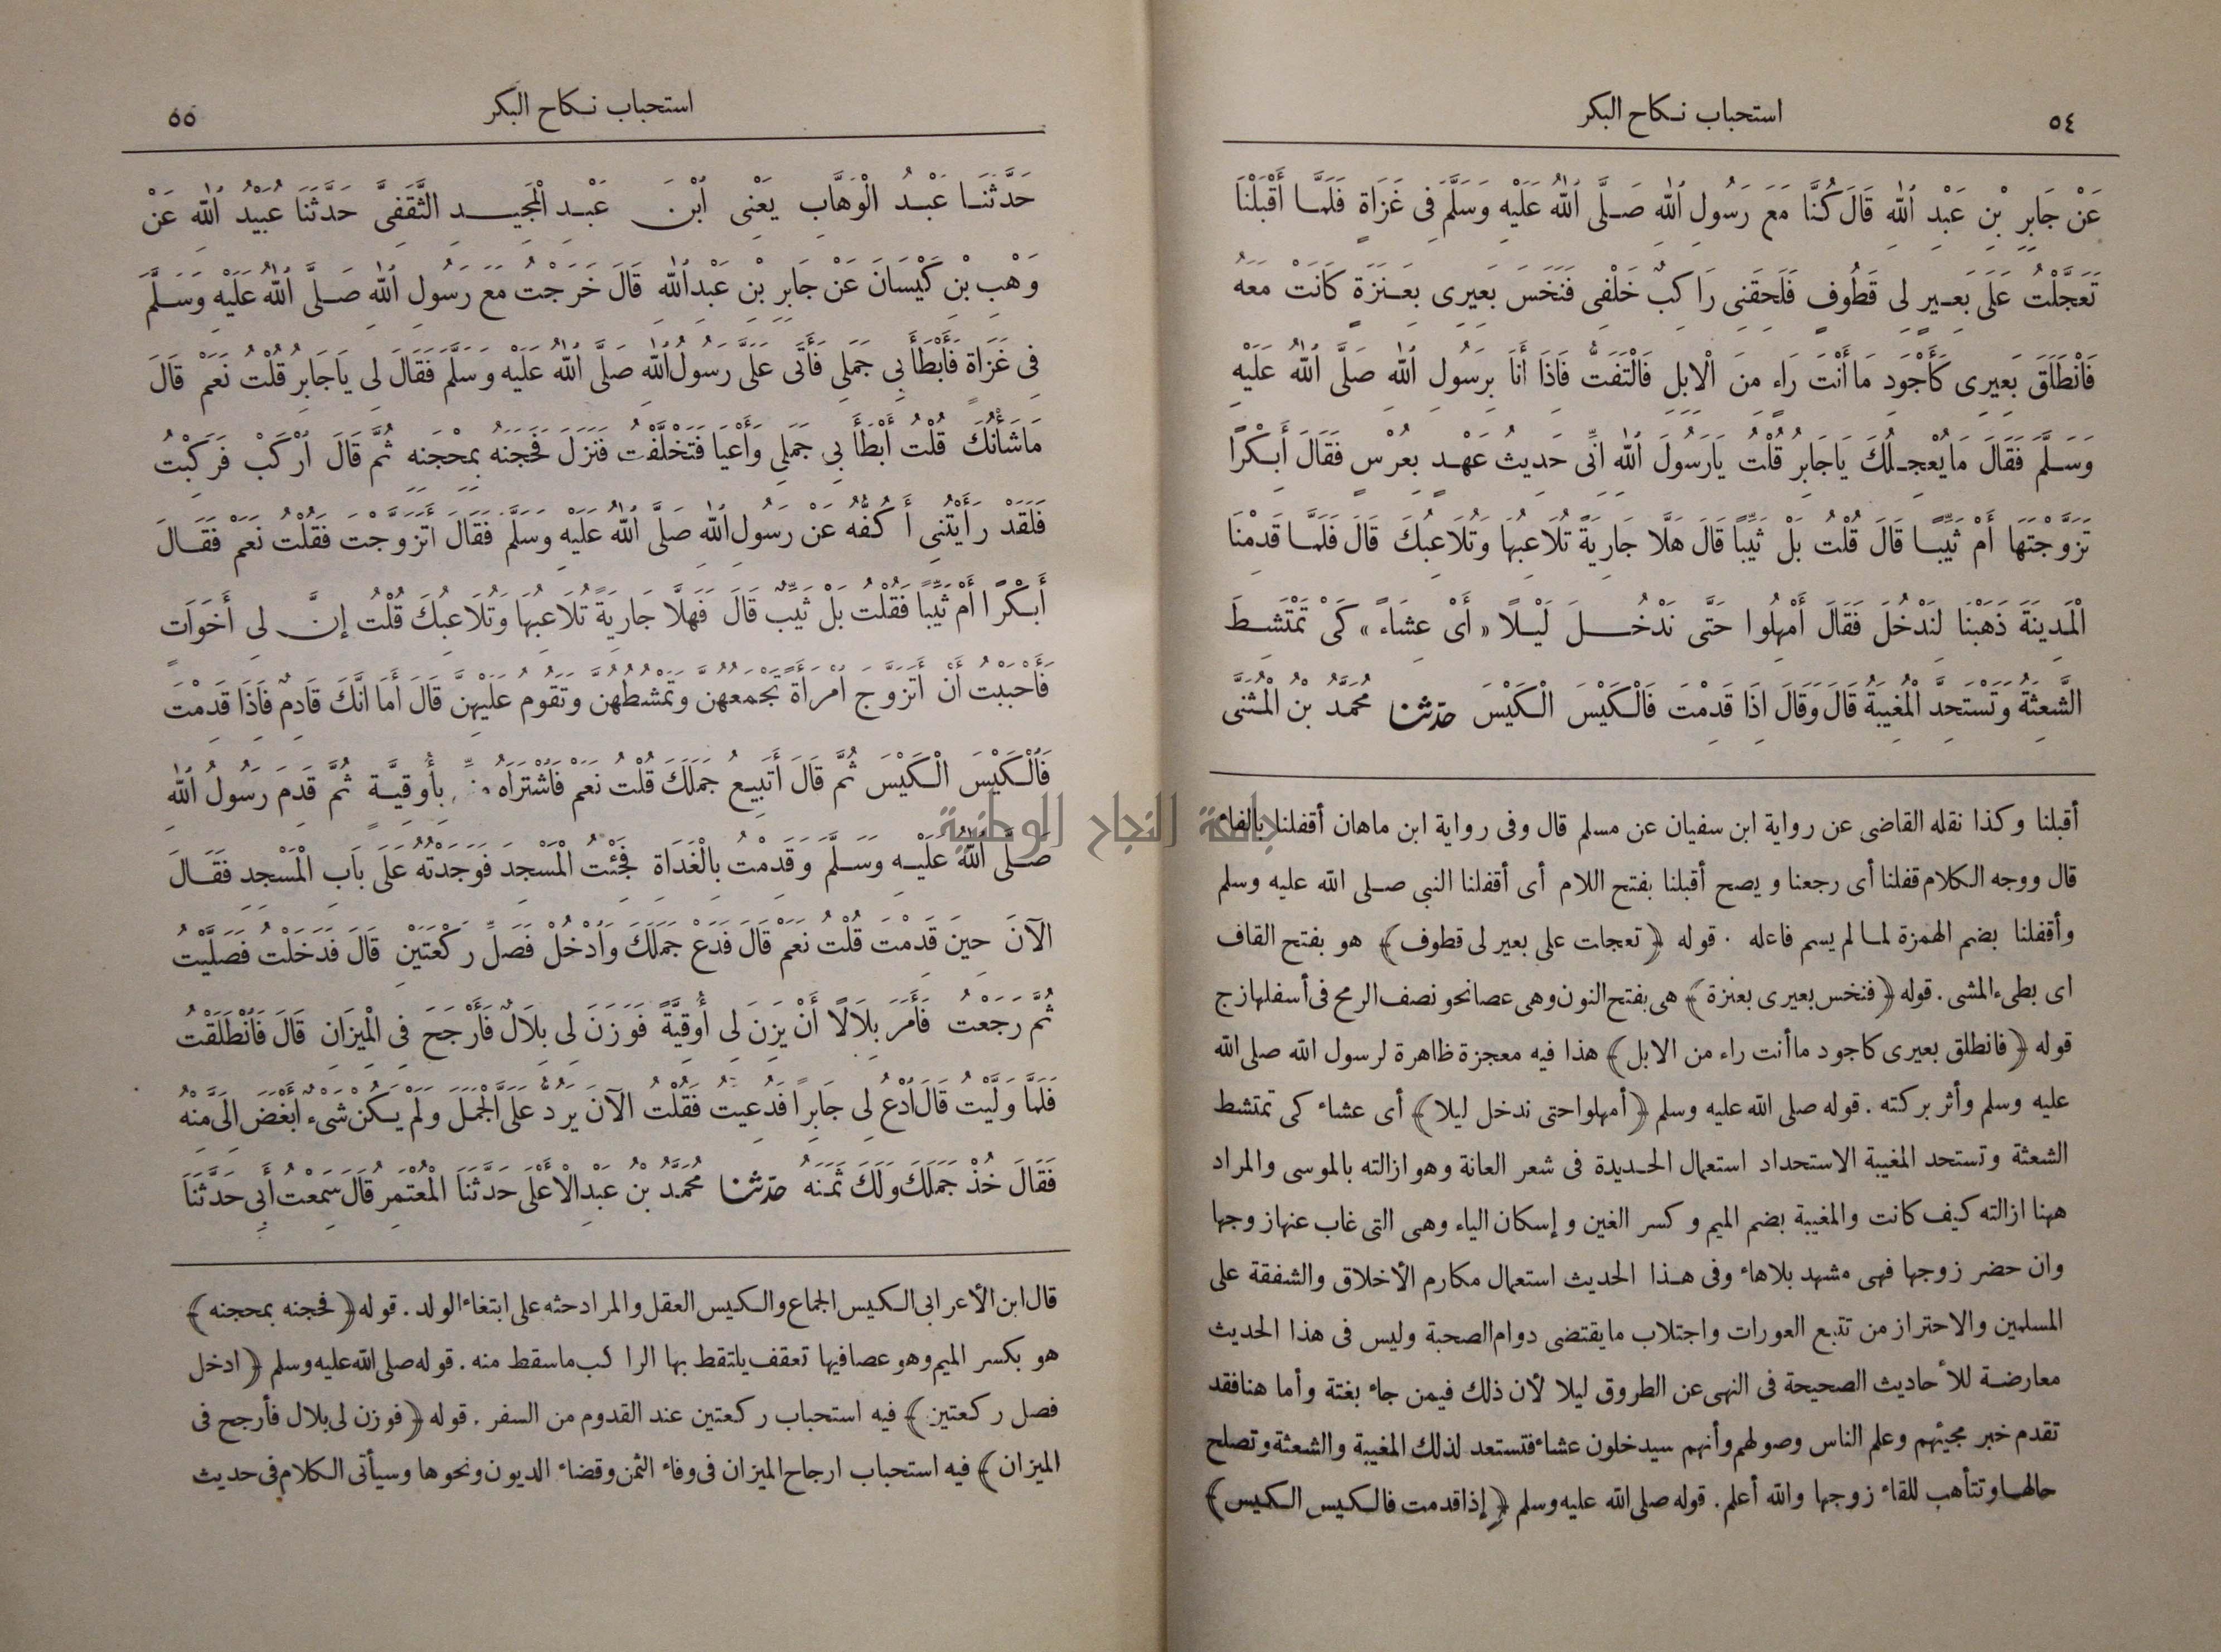 ٥٤
استحباب نكاح البكر
عَنْ جَابِرِ بْنِ عَبْدِ اللهِ قَالَ كُنَّا مَعَ رَسُولِ اللهِ صَلَّى اللهُ عَلَيْهِ وَسَلَّمَ فِي غَزَاةٍ فَلَمَّا أَقْبَلْنَا
تَعَجَّلْتُ عَلَى بَعِيرٍ لِي قَطُوفٍ فَلَحِقَنِي رَاكِبٌ خَلْفِي فَنَخَسَ بَعِيرِي بِعَنَزَةٍ كَانَتْ مَعَهُ
فَانْطَلَقَ بَعِيرِي كَأَجْوَدِ مَا أَنْتَ رَاءٍ مِنَ الْإِبِلِ فَالْتَفَتُّ فَإِذَا أَنَا بِرَسُولِ اللهِ صَلَّى اللهُ عَلَيْهِ
وَسَلَّمَ فَقَالَ مَا يُعْجِلُكَ يَا جَابِرُ قُلْتُ يَا رَسُولَ اللهِ إِنِّي حَدِيثُ عَهْدٍ بِعُرْسٍ فَقَالَ أَبِكْرًا
تَزَوَّجْتَهَا أَمْ ثَيِّبًا قَالَ قُلْتُ بَلْ ثَيِّبًا قَالَ هَلَّا جَارِيَةً تُلَاعِبُهَا وَتُلَاعِبُكَ قَالَ فَلَمَّا قَدِمْنَا
الْمَدِينَةَ ذَهَبْنَا لِنَدْخُلَ فَقَالَ أَمْهِلُوا حَتَّى نَدْخُلَ لَيْلًا « أَيْ عِشَاءً » كَيْ تَمْتَشِطَ
الشَّعِثَةُ وَتَسْتَحِدَّ الْمُغِيبَةُ قَالَ وَقَالَ إِذَا قَدِمْتَ فَالْكَيْسَ الْكَيْسَ حدثنا مُحَمَّدُ بْنُ الْمُثَنَّى
أقبلنا وكذا نقله القاضى عن رواية ابن سفيان عن مسلم قال وفى رواية ابن ماهان أقفلنا بالفاء
قال ووجه الكلام قفلنا أى رجعنا ويصح أقبلنا بفتح اللام أى أقفلنا النبى صلى الله عليه وسلم
وأقفلنا بضم الهمزة لما لم يسم فاعله . قوله ﴿ تعجلت على بعير لى قطوف ﴾ هو بفتح القاف
اى بطىء المشى . قوله ﴿ فنخس بعيرى بعنزة ﴾ هى بفتح النون وهى عصا نحو نصف الرمح فى أسفلها زج
قوله ﴿ فانطلق بعيرى كاجود ما أنت راء من الابل ﴾ هذا فيه معجزة ظاهرة لرسول الله صلى الله
عليه وسلم وأثر بركته . قوله صلى الله عليه وسلم ﴿ أمهلوا حتى ندخل ليلا ﴾ أى عشاء كى تمتشط
الشعثة وتستحد المغيبة الاستحداد استعمال الحديدة فى شعر العانة وهو ازالته بالموسى والمراد
ههنا ازالته كيف كانت والمغيبة بضم الميم وكسر الغين وإسكان الياء وهى التى غاب عنها زوجها
وان حضر زوجها فهى مشهد بلا هاء وفى هذا الحديث استعمال مكارم الأخلاق والشفقة على
المسلمين والاحتراز من تتبع العورات واجتلاب ما يقتضى دوام الصحبة وليس فى هذا الحديث
معارضة للأحاديث الصحيحة فى النهى عن الطروق ليلا لأن ذلك فيمن جاء بغتة وأما هنا فقد
تقدم خبر مجيئهم وعلم الناس وصولهم وأنهم سيدخلون عشاء فتستعد لذلك المغيبة والشعثة وتصلح
حالها وتتأهب للقاء زوجها والله أعلم . قوله صلى الله عليه وسلم ﴿ إذا قدمت فالكيس الكيس ﴾
استحباب نكاح البكر
٥٥
حَدَّثَنَا عَبْدُ الْوَهَّابِ يَعْنِي ابْنَ عَبْدِ الْمَجِيدِ الثَّقَفِيَّ حَدَّثَنَا عُبَيْدُ اللهِ عَنْ
وَهْبِ بْنِ كَيْسَانَ عَنْ جَابِرِ بْنِ عَبْدِ اللهِ قَالَ خَرَجْتُ مَعَ رَسُولِ اللهِ صَلَّى اللهُ عَلَيْهِ وَسَلَّمَ
فِي غَزَاةٍ فَأَبْطَأَ بِي جَمَلِي فَأَتَى عَلَيَّ رَسُولُ اللهِ صَلَّى اللهُ عَلَيْهِ وَسَلَّمَ فَقَالَ لِي يَا جَابِرُ قُلْتُ نَعَمْ قَالَ
مَا شَأْنُكَ قُلْتُ أَبْطَأَ بِي جَمَلِي وَأَعْيَا فَتَخَلَّفْتُ فَنَزَلَ فَحَجَنَهُ بِمِحْجَنِهِ ثُمَّ قَالَ ارْكَبْ فَرَكِبْتُ
فَلَقَدْ رَأَيْتُنِي أَكُفُّهُ عَنْ رَسُولِ اللهِ صَلَّى اللهُ عَلَيْهِ وَسَلَّمَ فَقَالَ أَتَزَوَّجْتَ فَقُلْتُ نَعَمْ فَقَالَ
أَبِكْرًا أَمْ ثَيِّبًا فَقُلْتُ بَلْ ثَيِّبٌ قَالَ فَهَلَّا جَارِيَةً تُلَاعِبُهَا وَتُلَاعِبُكَ قُلْتُ إِنَّ لِي أَخَوَاتٍ
فَأَحْبَبْتُ أَنْ أَتَزَوَّجَ امْرَأَةً تَجْمَعُهُنَّ وَتَمْشُطُهُنَّ وَتَقُومُ عَلَيْهِنَّ قَالَ أَمَا إِنَّكَ قَادِمٌ فَإِذَا قَدِمْتَ
فَالْكَيْسَ الْكَيْسَ ثُمَّ قَالَ أَتَبِيعُ جَمَلَكَ قُلْتُ نَعَمْ فَاشْتَرَاهُ مِنِّي بِأُوقِيَّةٍ ثُمَّ قَدِمَ رَسُولُ اللهِ
صَلَّى اللهُ عَلَيْهِ وَسَلَّمَ وَقَدِمْتُ بِالْغَدَاةِ فَجِئْتُ الْمَسْجِدَ فَوَجَدْتُهُ عَلَى بَابِ الْمَسْجِدِ فَقَالَ
الْآنَ حِينَ قَدِمْتَ قُلْتُ نَعَمْ قَالَ فَدَعْ جَمَلَكَ وَادْخُلْ فَصَلِّ رَكْعَتَيْنِ قَالَ فَدَخَلْتُ فَصَلَّيْتُ
ثُمَّ رَجَعْتُ فَأَمَرَ بِلَالًا أَنْ يَزِنَ لِي أُوقِيَّةً فَوَزَنَ لِي بِلَالٌ فَأَرْجَحَ فِي الْمِيزَانِ قَالَ فَانْطَلَقْتُ
فَلَمَّا وَلَّيْتُ قَالَ ادْعُ لِي جَابِرًا فَدُعِيتُ فَقُلْتُ الْآنَ يَرُدُّ عَلَيَّ الْجَمَلَ وَلَمْ يَكُنْ شَيْءٌ أَبْغَضَ إِلَيَّ مِنْهُ
فَقَالَ خُذْ جَمَلَكَ وَلَكَ ثَمَنُهُ حدثنا مُحَمَّدُ بْنُ عَبْدِ الْأَعْلَى حَدَّثَنَا الْمُعْتَمِرُ قَالَ سَمِعْتُ أَبِي حَدَّثَنَا
قال ابن الأعرابى الكيس الجماع والكيس العقل والمراد حثه على ابتغاء الولد . قوله ﴿ فحجنه بمحجنه ﴾
هو بكسر الميم وهو عصا فيها تعقف يلتقط بها الراكب ما سقط منه . قوله صلى الله عليه وسلم ﴿ ادخل
فصل ركعتين ﴾ فيه استحباب ركعتين عند القدوم من السفر . قوله ﴿ فوزن لى بلال فأرجح فى
الميزان ﴾ فيه استحباب ارجاح الميزان فى وفاء الثمن وقضاء الديون ونحوها وسيأتى الكلام فى حديث
جامعة النجاح الوطنية